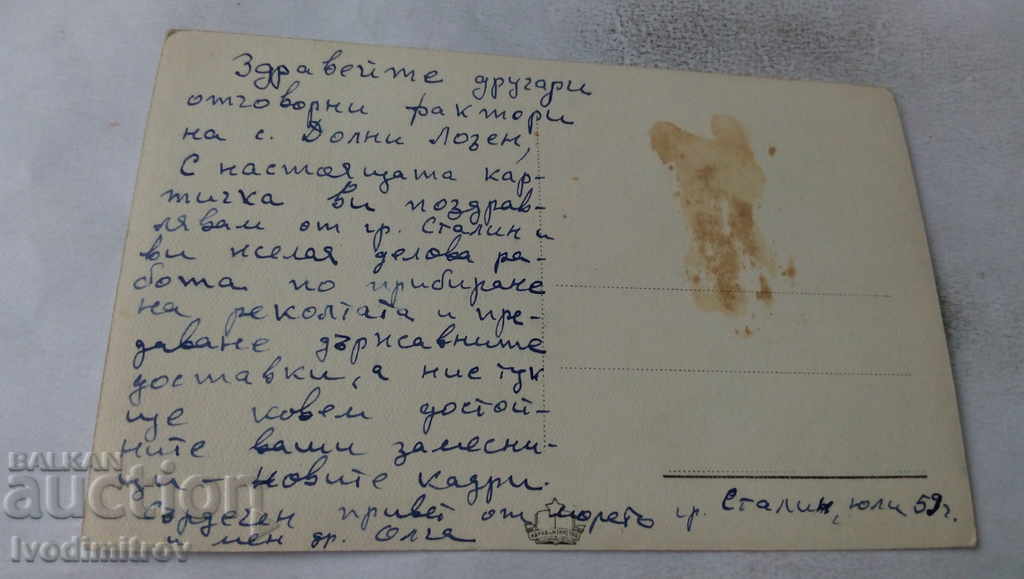 Здравейте другари
отговорни фактори
на с. Долни Лозен,
С настоящата кар-
тичка ви поздрав-
лявам от гр. Сталин и
ви желая делова ра-
бота по прибиране
на реколтата и пре-
даване държавните
доставки, а ние тук
ще ковем достой-
ните ваши замесни-
ци - новите кадри.
Сърдечен привет от морето гр. Сталин, юли 59 г.
и мен др. Олга
BALKAN
auction
Ivodimitrov